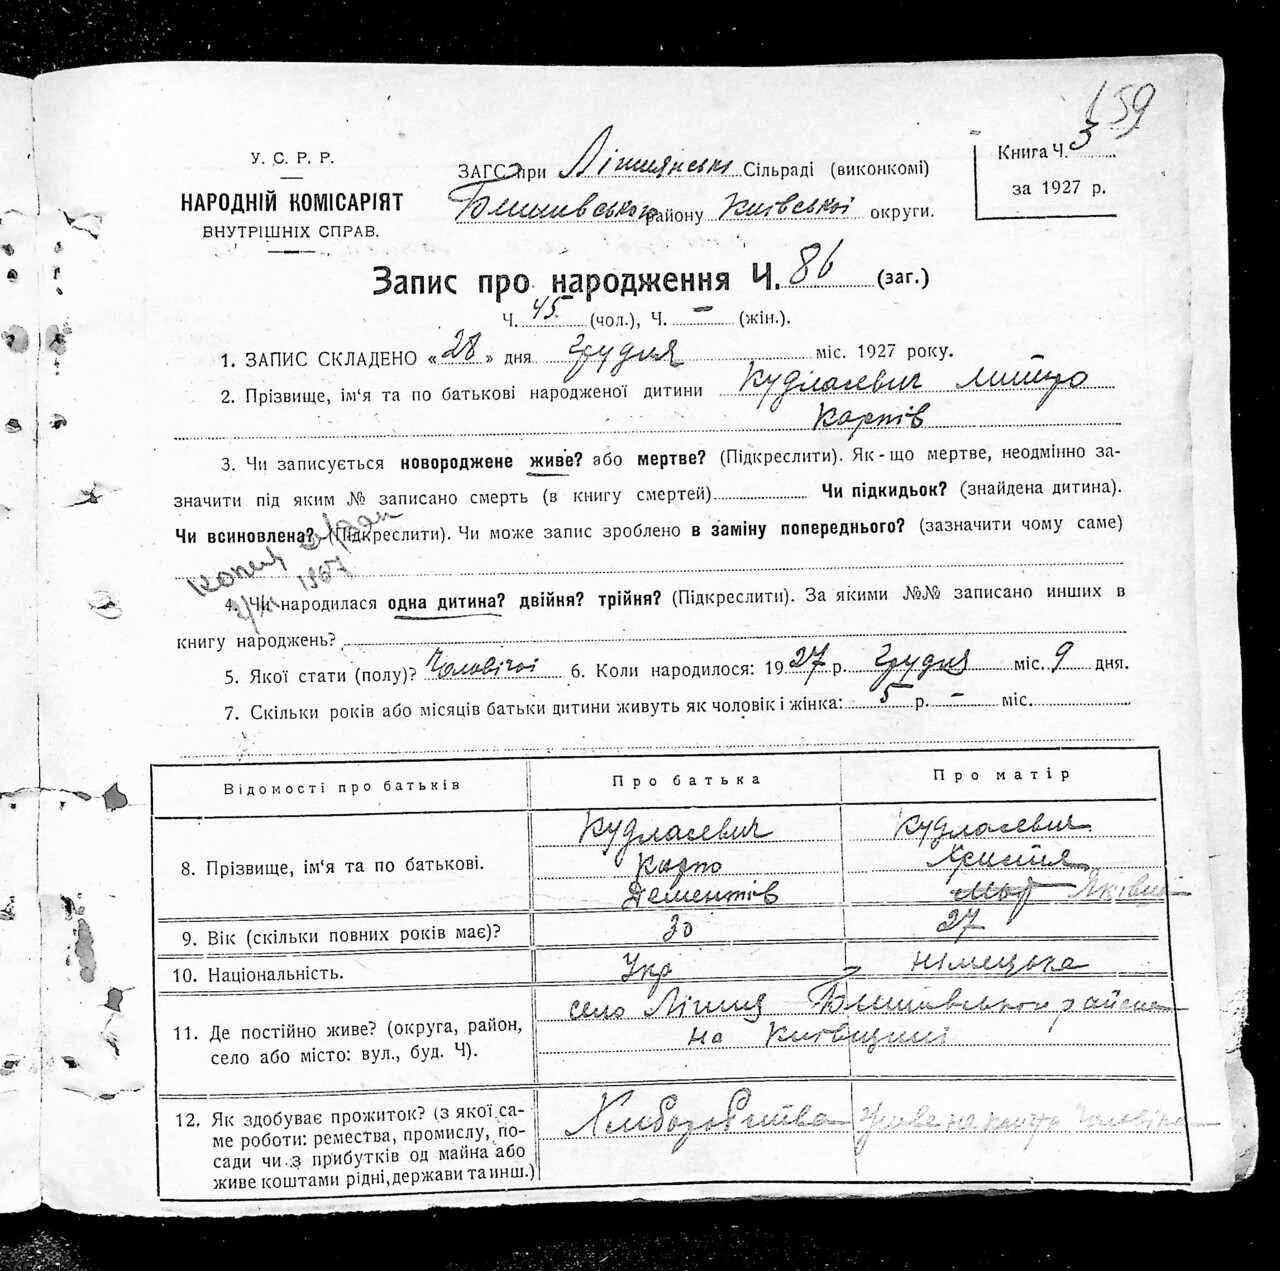 159
У. С. Р. Р.
НАРОДНІЙ КОМІСАРІЯТ
ВНУТРІШНІХ СПРАВ.
ЗАГС при Сільраді (виконкомі)
району Київської округи.
Книга Ч. 3
за 1927 р.
Запис про народження Ч. 86 (заг.)
Ч. 45 (чол.), Ч. – (жін.).
1. ЗАПИС СКЛАДЕНО «28» дня грудня міс. 1927 року.
2. Прізвище, ім'я та по батькові народженої дитини Кудласевич
Карпів
3. Чи записується новороджене живе? або мертве? (Підкреслити). Як-що мертве, неодмінно за-
значити під яким № записано смерть (в книгу смертей) Чи підкидьок? (знайдена дитина).
Чи всиновлена? (Підкреслити). Чи може запис зроблено в заміну попереднього? (зазначити чому саме)
1967
4. Чи народилася одна дитина? двійня? трійня? (Підкреслити). За якими №№ записано инших в
книгу народжень?
5. Якої стати (полу)? Чоловічої 6. Коли народилося: 1927 р. грудня міс. 9 дня.
7. Скільки років або місяців батьки дитини живуть як чоловік і жінка: 5 р. – міс.
Відомості про батьків Про батька Про матір
8. Прізвище, ім'я та по батькові. Кудласевич Кудласевич
Карпо Христя
Дементів Яківна
9. Вік (скільки повних років має)? 30 27
10. Національність. Укр німецька
11. Де постійно живе? (округа, район, село або місто: вул., буд. Ч). село району
на Київщині
12. Як здобуває прожиток? (з якої са-
ме роботи: ремества, промислу, по-
сади чи з прибутків од майна або
живе коштами рідні, держави та инш.)
Хліборобства